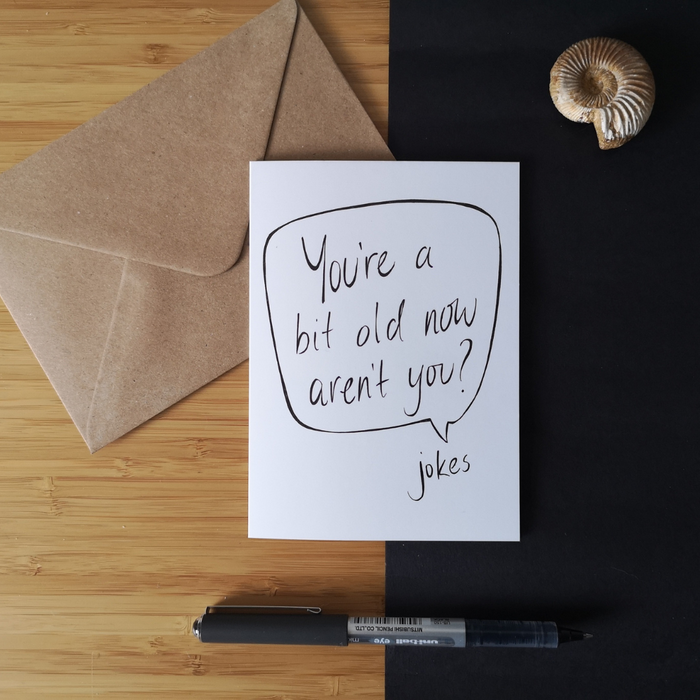 You're a
bit old now
aren't you?
jokes
MITSUBISHI PENCIL CO.,LTD.
uni-ball eye